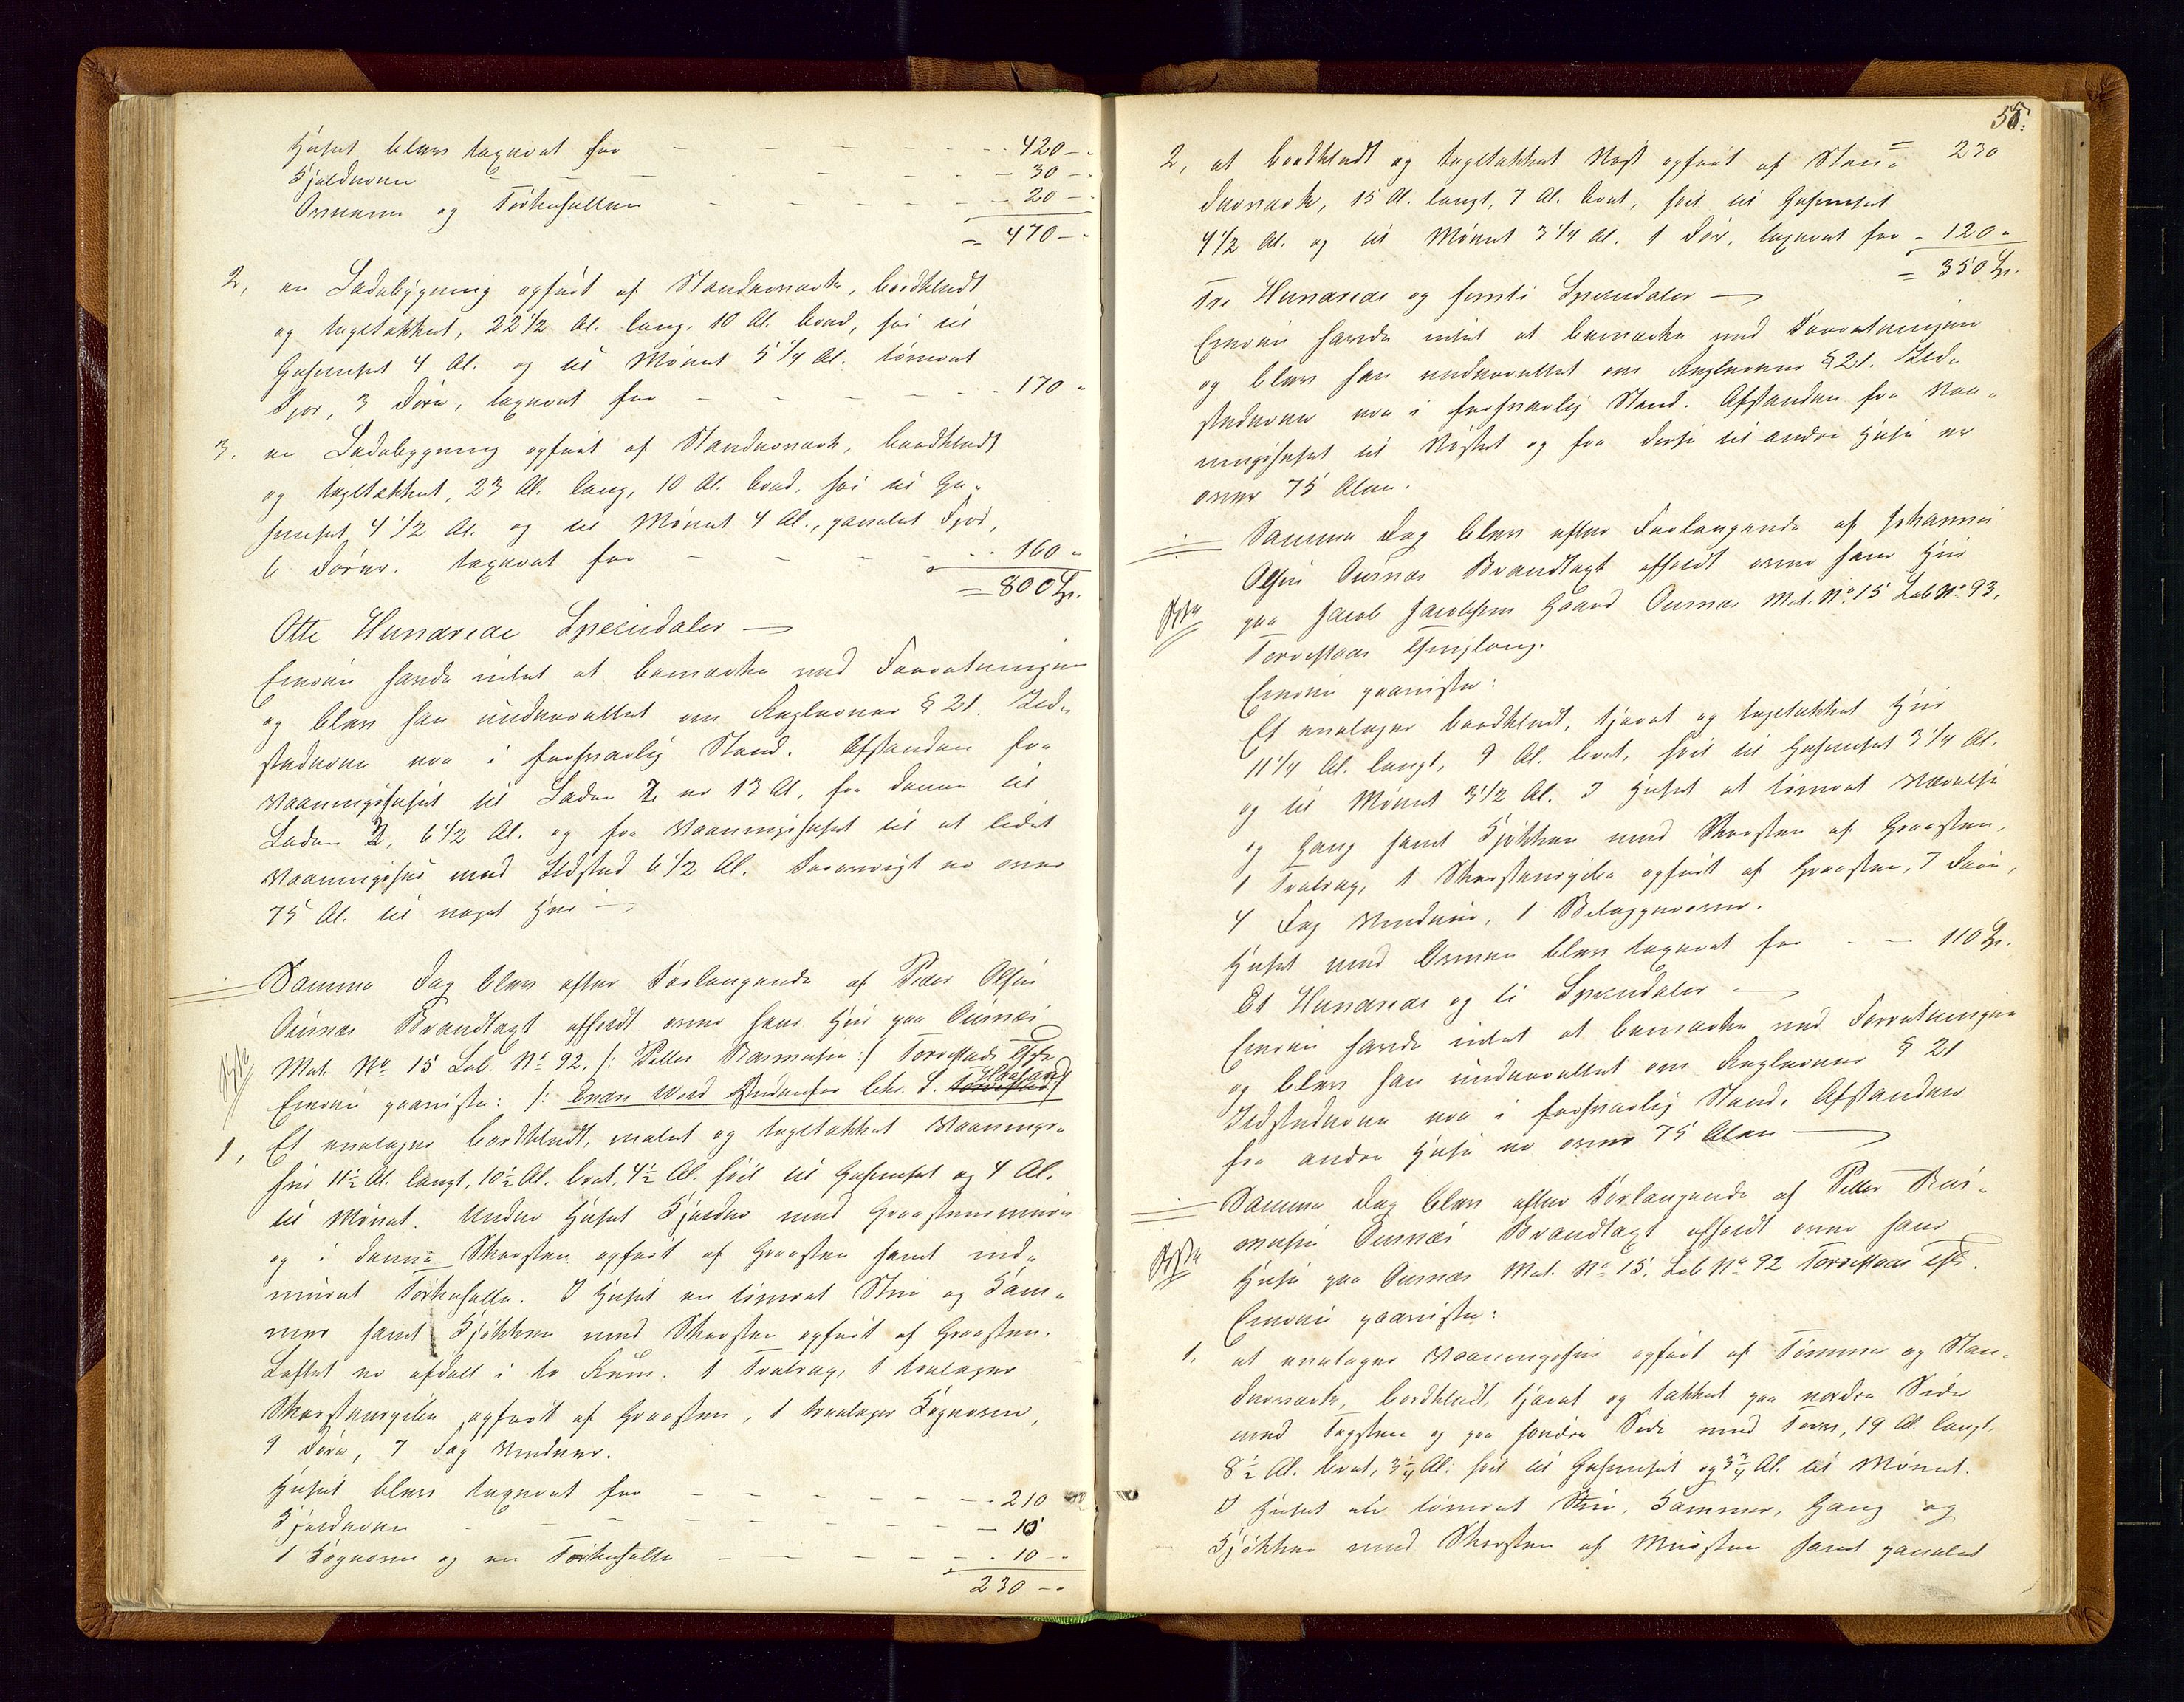 Huset blev taxeret for - - - - - 420 -
Kjelderen - - - - - 30 -
Ovnene og Tørkehellen - - - - - 20 -
= 470 -
2, en Ladebygning opført af Standerværk, bordklædt
og tagstækket, 22 1/2 Al. lang, 10 Al. bred, høi til
Gesemset 4 Al. og til Mønet 5 1/4 Al. tømret
Fjøs, 3 Døre, taxeret for - - - - 170 "
3. en Ladebygning opført af Standerværk, bordklædt
og tagltækket, 23 Al. lang, 10 Al. bred, høi til Ge-
semset 4 1/2 Al. og til Mønet 4 Al., panelet Fjøs,
6 Dører. taxeret for - - - - 160 "
= 800 Sp.
Otte Hundrede Speciedaler —
Eieren havde intet at bemærke ved Forretningen
og blev han underrettet om Reglernes § 21. Ild-
stederne var i forsvarlig Stand. Afstanden fra
Vaaningshuset til Laden 2 er 13 Al, fra denne til
Laden 3, 6 1/2 Al. og fra Vaaningshuset til et lidet
Vaaningshus med Ildsted 6 1/2 Al. Forøvrigt er over
75 Al. til noget Hus —
Samme Dag blev efter Forlangende af Peder Olsen
Ousnæs Brandtaxt afholdt over hans Hus paa Ousnæs
Mat. No 15 Lab. No 92, /: Peller Rasmussen :/ Torvestads
Eieren paaviste: /:
1, Et enetages bordklædt, malet og tagltækket Vaanings-
hus 11 1/2 Al. langt, 10 1/2 Al. bredt, 4 1/2 Al. høit til Gesemset og 4 Al.
til Mønet. Under Huset Kjelder med Graasteensmure
og i denne Skorsten opført af Graasten samt ind-
muret Tørkehelle. I Huset en tømret Stue og Kam-
mer samt Kjøkken med Skorsten opført af Graasten.
Loftet er afdelt i to Rum. 1 Svalrag, 1
Skorstenspibe opført af Graasten, 1 treetages Kogeovn,
9 Døre, 7 Fag Vinduer.
Huset blev taxeret for - - - - - 210
Kjelderen - - - - - 10
1 Kogeovn og en Tørkehelle - - - - 10 -
230 -
55.
2, et bordklædt og tagltækket Nøst opført af Stan- = 230
derværk, 15 Al. langt, 7 Al. bredt, høit til Gesemset
4 1/2 Al. og til Mønet 3 1/4 Al. 1 Dør, taxeret for - 120 "
= 350 Sp.
Tre Hundrede og femti Speciedaler —
Eieren havde intet at bemærke ved Forretningen
og blev han underrettet om Reglernes § 21. Ild-
stederne var i forsvarlig Stand. Afstanden fra Vaa-
ningshuset til Nøstet og fra disse til andre Huse er
over 75 Alen.
Samme Dag blev efter Forlangende af Johannes
Olsen Ousnæs Brandtaxt afholdt over hans Hus
paa Jacob Jacobsens Gaard Ousnæs Mat. No 15 Lab No 93.
Torvestads Thinglaug.
Eieren paaviste:
Et enetages bordklædt, tjæret og tagltækket Hus
11 1/4 Al. langt, 9 Al. bredt, høit til Gesemset 3 1/4 Al.
og til Mønet 3 1/2 Al. I Huset et tømret Værelse
og Gang samt Kjøkken med Skorsten af Graasten,
1 Svalrag, 1 Skorstenspibe opført af Graasten, 7 Døre,
4 Fag Vinduer, 1 Bilæggerovn.
Huset med Ovnen blev taxeret for - - 110 Sp.
Et Hundrede og ti Speciedaler —
Eieren havde intet at bemærke ved Forretningen
og blev han underrettet om Reglernes § 21
Ildstederne var i forsvarlig Stand. Afstanden
fra andre Huse er over 75 Alen —
Samme Dag blev efter Forlangende af Peller Ras-
mussen Ousnæs Brandtaxt afholdt over hans
Huse paa Ousnæs Mat. No 15. Lab No 92 Torvestads
Eieren paaviste:
1. et enetages Vaaningshus opført af Tømmer og Stan-
derværk, bordklædt, tjæret og tækket paa nordre Side
med Tagsten og paa søndre Side med Torv, 19 Al. langt,
8 1/2 Al. bredt, 3 1/4 Al. høit til Gesemset og 3 3/4 Al. til Mønet.
I Huset er tømret Stue, Kammer, Gang og
Kjøkken med Skorsten af Mursten samt panelet